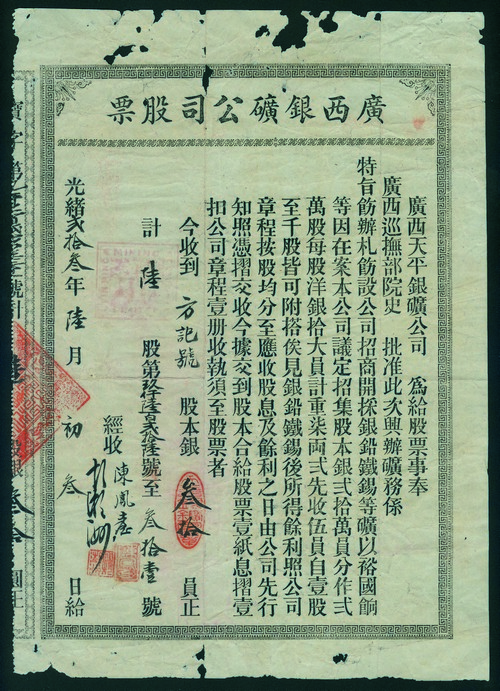 廣西銀礦公司股票
廣西天平銀礦公司 為給股票事奉
廣西巡撫部院史 批准此次興辦礦務係
特旨飭辦札飭設公司招商開採銀鉛鐵錫等礦以裕國餉
等因在案本公司議定招集股本銀弍拾萬員分作弍
萬股每股洋銀拾大員計重柒両弍先收伍員自壹股
至千股皆可附搭俟見銀鉛鐵錫後所得餘利照公司
章程按股均分至應收股息及餘利之日由公司先行
知照憑摺交收今據交到股本合給股票壹紙息摺壹
扣公司章程壹册收執須至股票者
今收到 方記號 股本銀 叁拾 員正
計 陸 股第玖仟陸百弍拾陸號至 叁拾壹 號
經收 陳鳳
光緒弍拾叁年 陸 月 初 叁 日給
字第 號計 股銀 叁拾 圓正